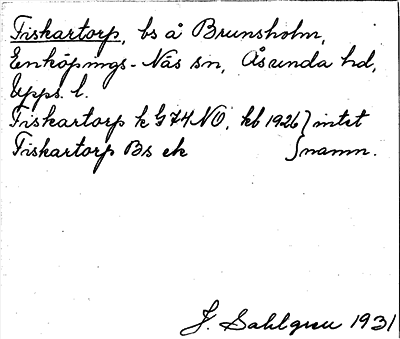 Fiskartorp, bs å Brunsholm,
Enköpings-Näs sn, Åsunda hd,
Upps. l.
Fiskartorp k G 74 NO, kb 1926 } intet
Fiskartorp Bs ek } namn.
J. Sahlgren 1931